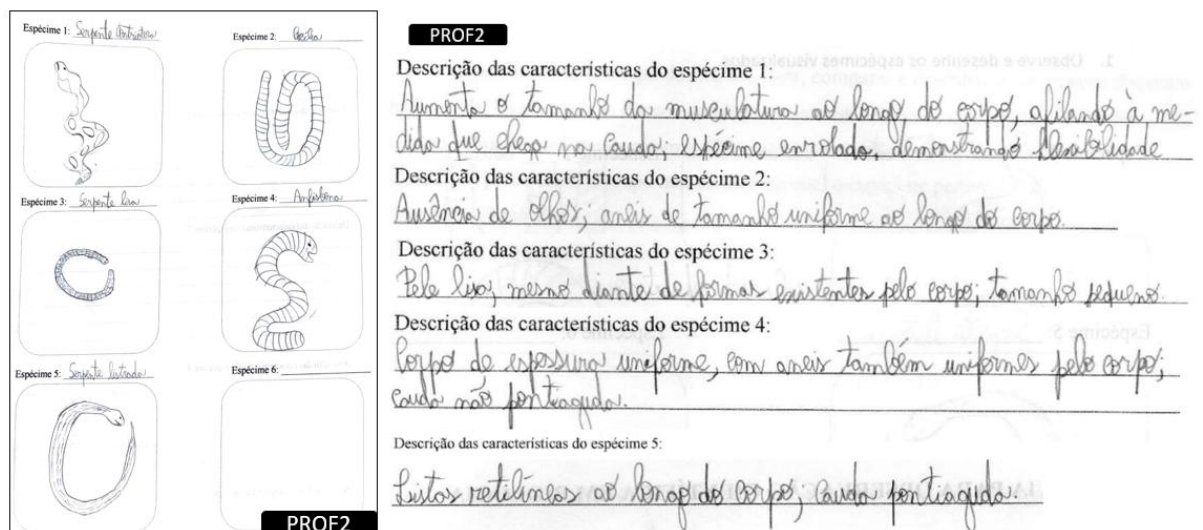 Espécime 1: Serpente
Espécime 2:
Espécime 3: Serpente lisa
Espécime 4: Anfisbena
Espécime 5: Serpente listrada
Espécime 6:
PROF2
PROF2
1. Observe e desenhe os espécimes visualizados
Descrição das características do espécime 1:
Aumenta o tamanho da musculatura ao longo do corpo, afilando à me-
dida que chega na cauda; espécime enrolado, demonstrando flexibilidade
Descrição das características do espécime 2:
Ausência de olhos; anéis de tamanho uniforme ao longo do corpo.
Descrição das características do espécime 3:
Pele lisa, mesmo diante de formas existentes pelo corpo; tamanho pequeno.
Descrição das características do espécime 4:
Corpo de espessura uniforme, com aneis também uniformes pelo corpo;
cauda não pontiaguda.
Descrição das características do espécime 5:
Listas retilíneas ao longo do corpo; cauda pontiaguda.